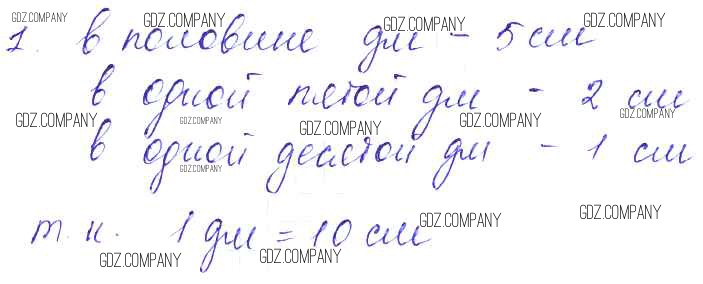 1. в половине дм - 5 см
в одной пятой дм - 2 см
в одной десятой дм - 1 см
т.к. 1 дм = 10 см
GDZ.COMPANY
GDZ.COMPANY
GDZ.COMPANY
GDZ.COMPANY
GDZ.COMPANY
GDZ.COMPANY
GDZ.COMPANY
GDZ.COMPANY
GDZ.COMPANY
GDZ.COMPANY
GDZ.COMPANY
GDZ.COMPANY
GDZ.COMPANY
GDZ.COMPANY